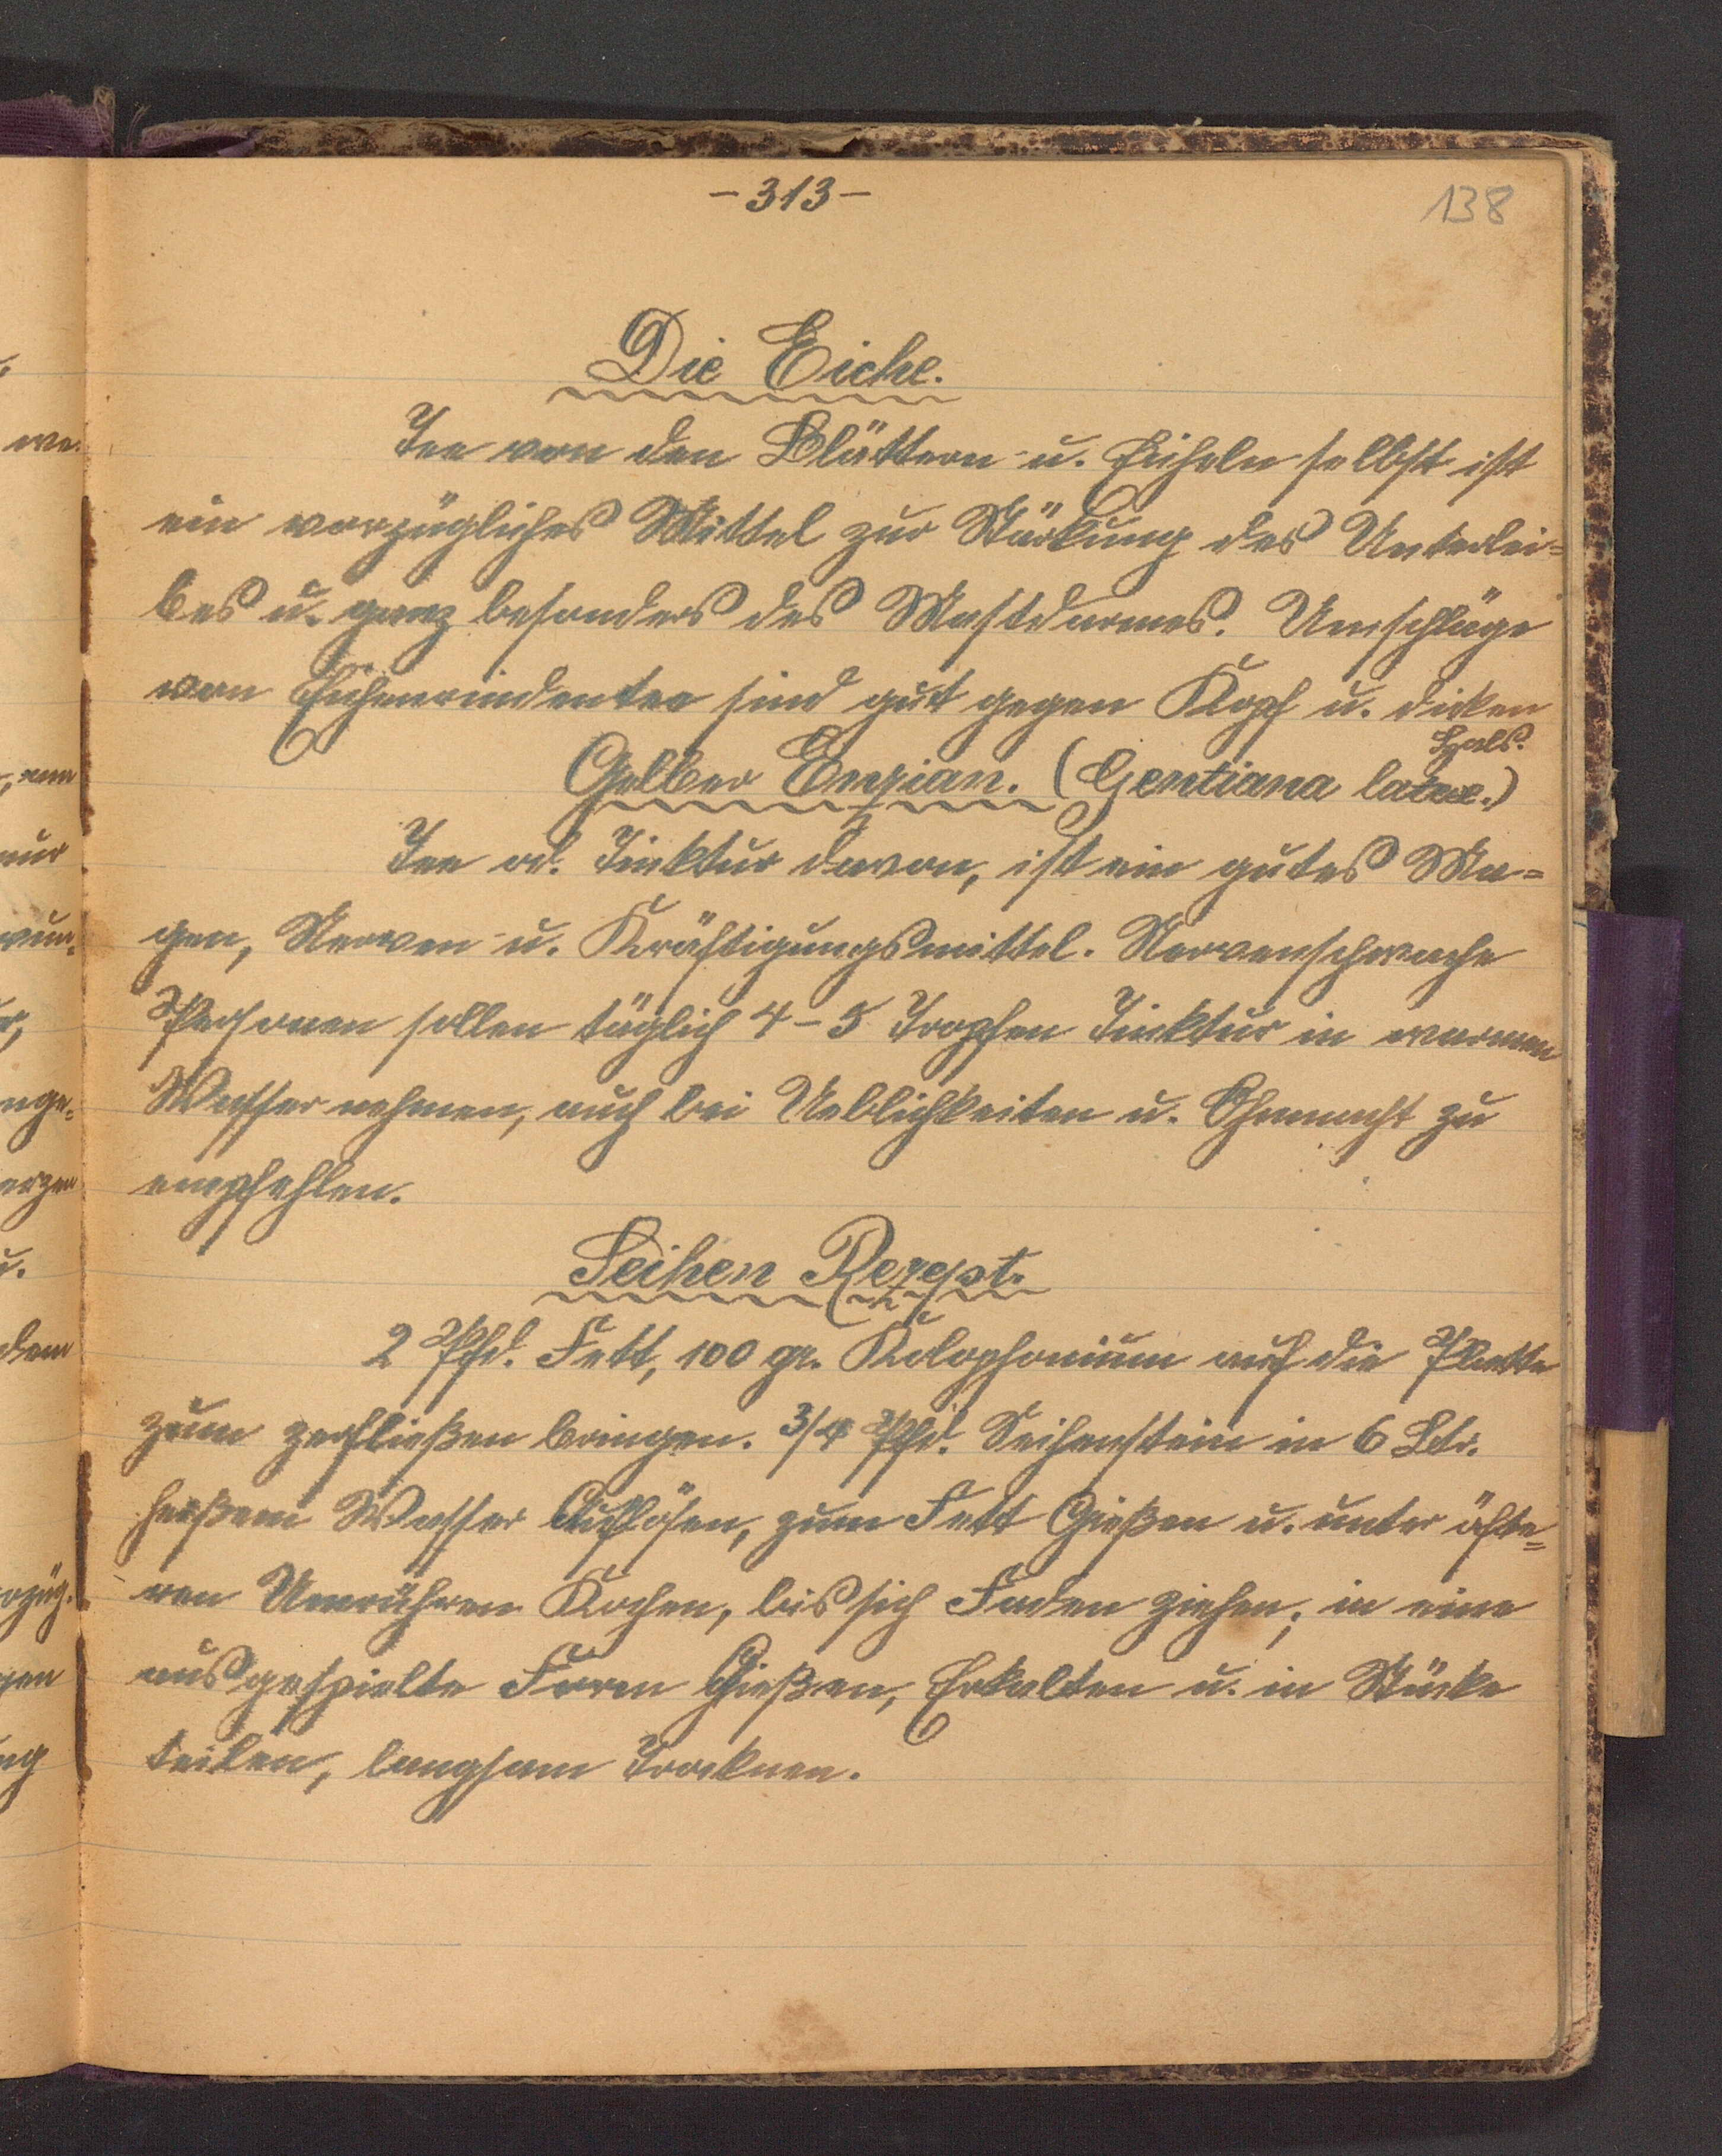 -313-
138
Die Eiche.
Tee von den Blättern u. Eicheln selbst ist
ein vorzügliches Mittel zur Stärkung des Unterlei=
bes u. ganz besonders des Mastdarmes. Umschläge
von Eichenrindentee sind gut gegen Kropf u. dicken
Hals.
Gelber Enzian. (Gentiana lutea.)
Tee od. Tinktur davon, ist ein gutes Ma=
gen, Nerven- u. Kräftigungsmittel. Nervenschwache
Personen sollen täglich 4-5 Tropfen Tinktur in warmen
Wasser nehmen, auch bei Ueblichkeiten u. Ohnmacht zu
empfehlen.
Seifen Rezept.
2 Pfd. Fett, 100 gr. Kolophonium auf die Platte
zum zerfließen bringen. 3/4 Pfd. Seifenstein in 6 Ltr.
heißem Wasser Auflösen, zum Fett Gießen u. unter öfte=
ren Umrühren Kochen, bis sich Faden ziehen, in eine
ausgespielte Form Gießen, Erkalten u. in Stücke
teilen, langsam Trocknen.